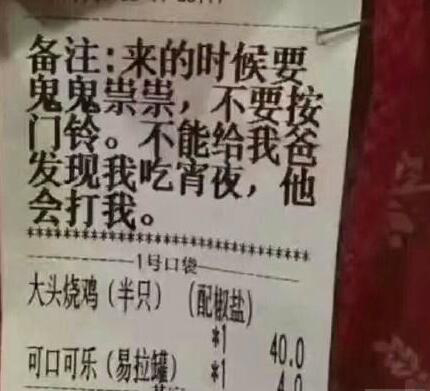 备注:来的时候要
鬼鬼祟祟，不要按
门铃。不能给我爸
发现我吃宵夜，他
会打我。
********************************
1号口袋
大头烧鸡（半只）（配椒盐）
*1 40.0
可口可乐（易拉罐） *1 4.0